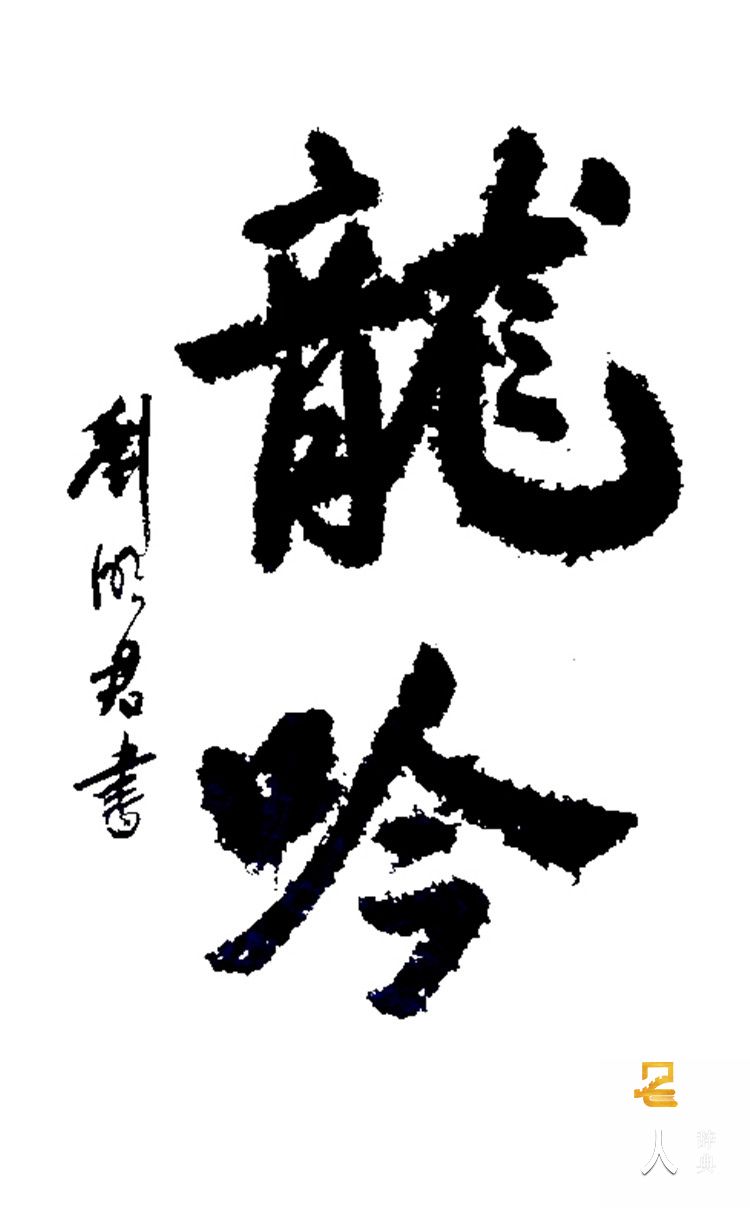 龍吟
劉明君書
名人辞典